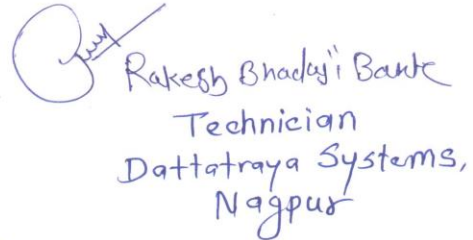 Rakesh Bhaduji Bante
Technician
Dattatraya Systems,
Nagpur